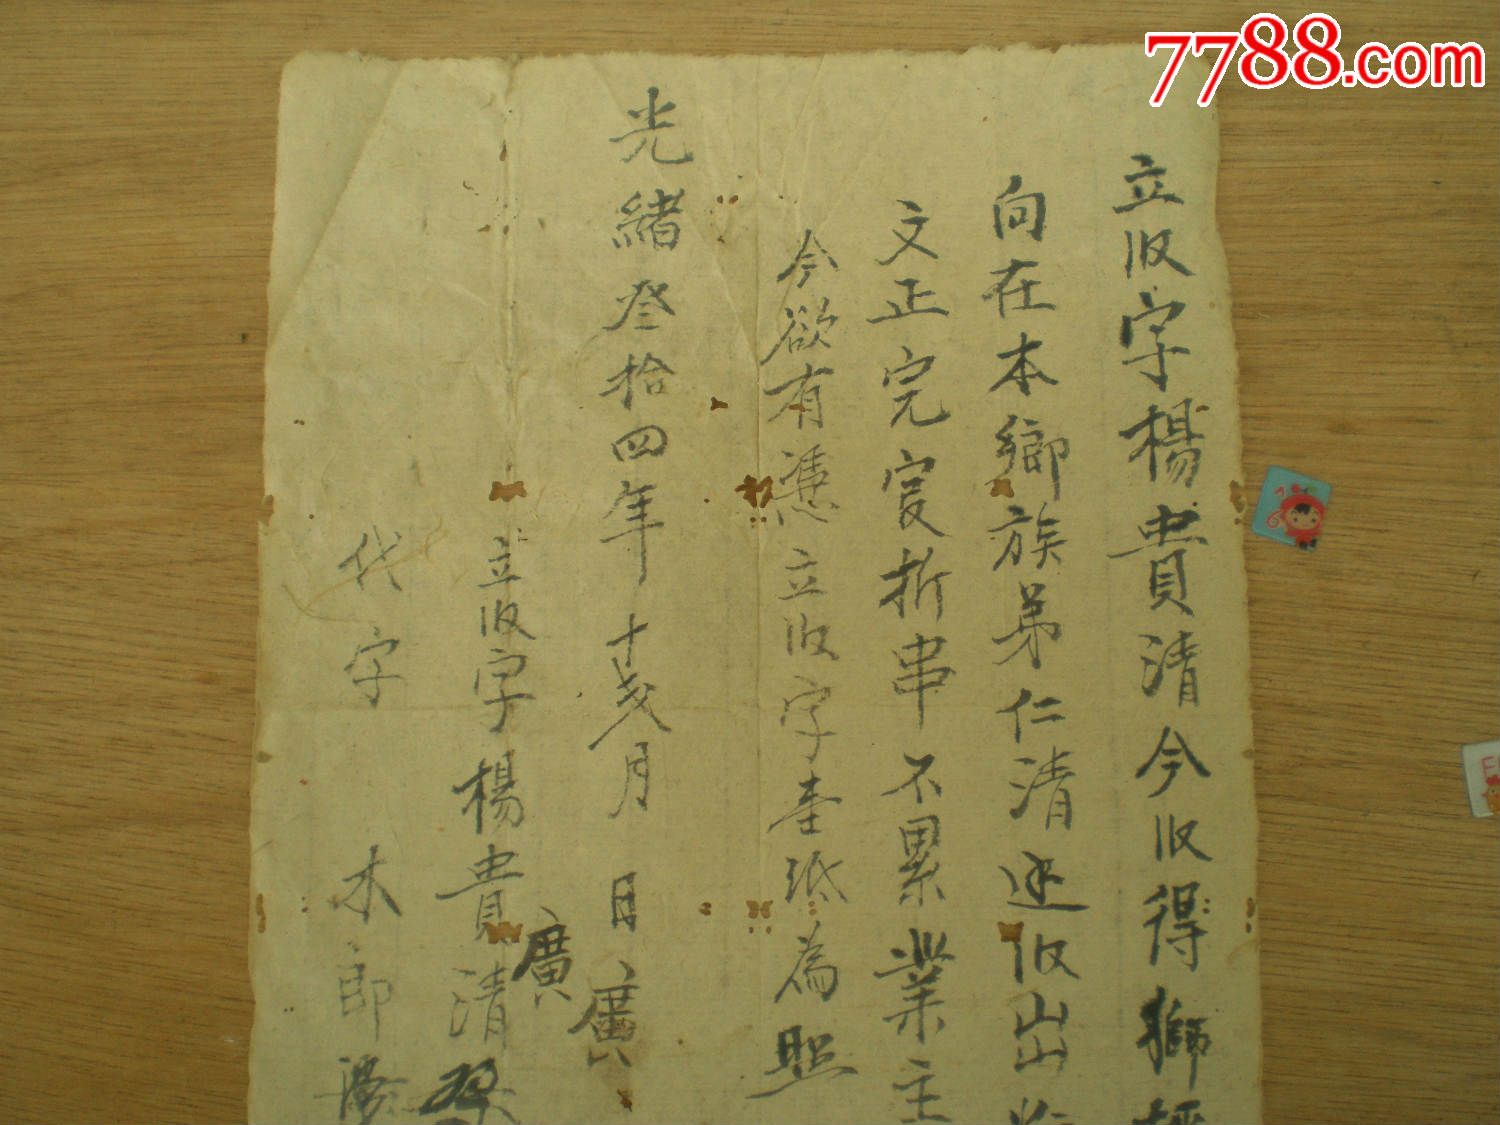 7788.com
立收字楊貴清今收得獅
向在本鄉族弟仁清逐收出
文正完官折串不累業主
今欲有憑立收字壹紙為照
光緒叁拾四年十弍月 日
廣
廣
立收字楊貴清
代字 木郎